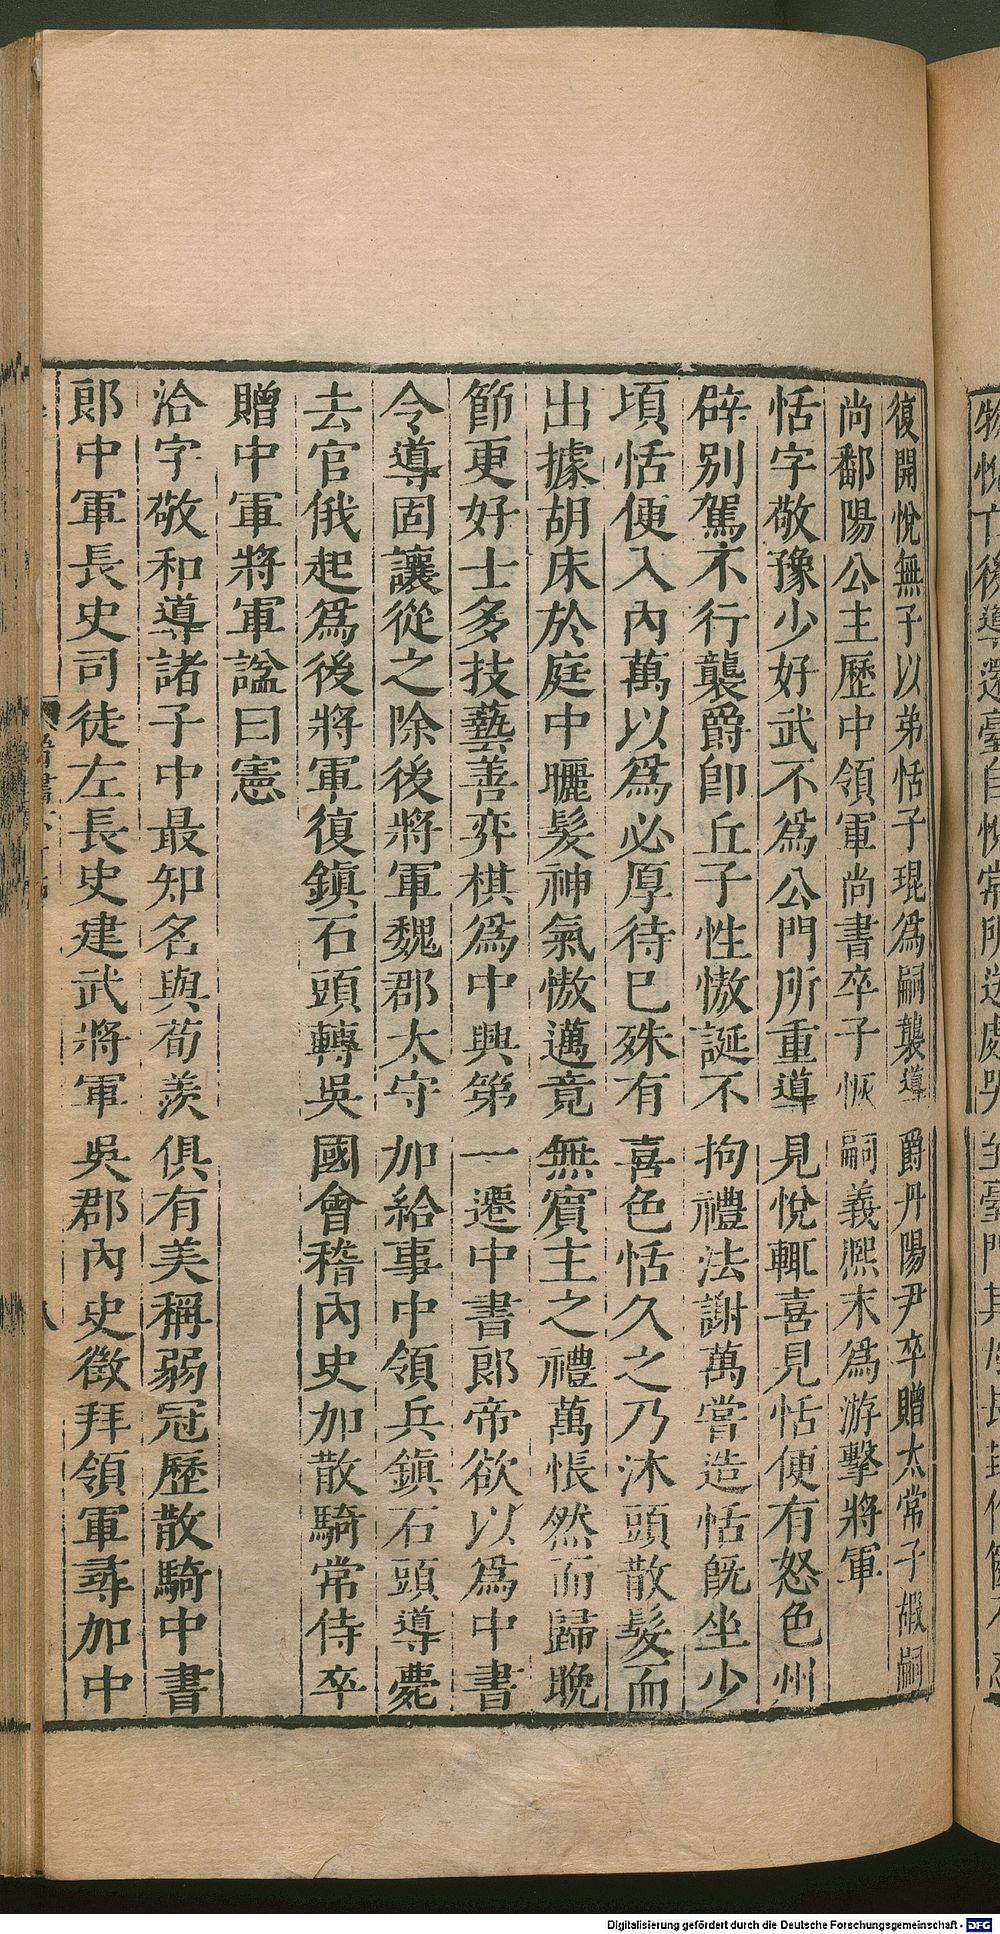 復開悅無子以弟恬子琨為嗣襲導爵丹陽尹卒贈太常子嘏嗣
尚鄱陽公主歷中領軍尚書卒子恢嗣義熙末為游擊將軍
恬字敬豫少好武不為公門所重導見悅輒喜見恬便有怒色州
辟別駕不行襲爵卽丘子性慠誕不拘禮法謝萬嘗造恬旣坐少
頃恬便入內萬以為必厚待已殊有喜色恬久之乃沐頭散髮而
出據胡床於庭中曬髮神氣慠邁竟無賓主之禮萬悵然而歸晚
節更好士多技藝善弈棋為中興第一遷中書郎帝欲以為中書
令導固讓從之除後將軍魏郡太守加給事中領兵鎮石頭導薨
去官俄起為後將軍復鎮石頭轉吳國會稽內史加散騎常侍卒
贈中軍將軍諡曰憲
洽字敬和導諸子中最知名與荀羨俱有美稱弱冠歷散騎中書
郎中軍長史司徒左長史建武將軍吳郡內史徵拜領軍尋加中
八
Digitalisierung gefördert durch die Deutsche Forschungsgemeinschaft - DFG